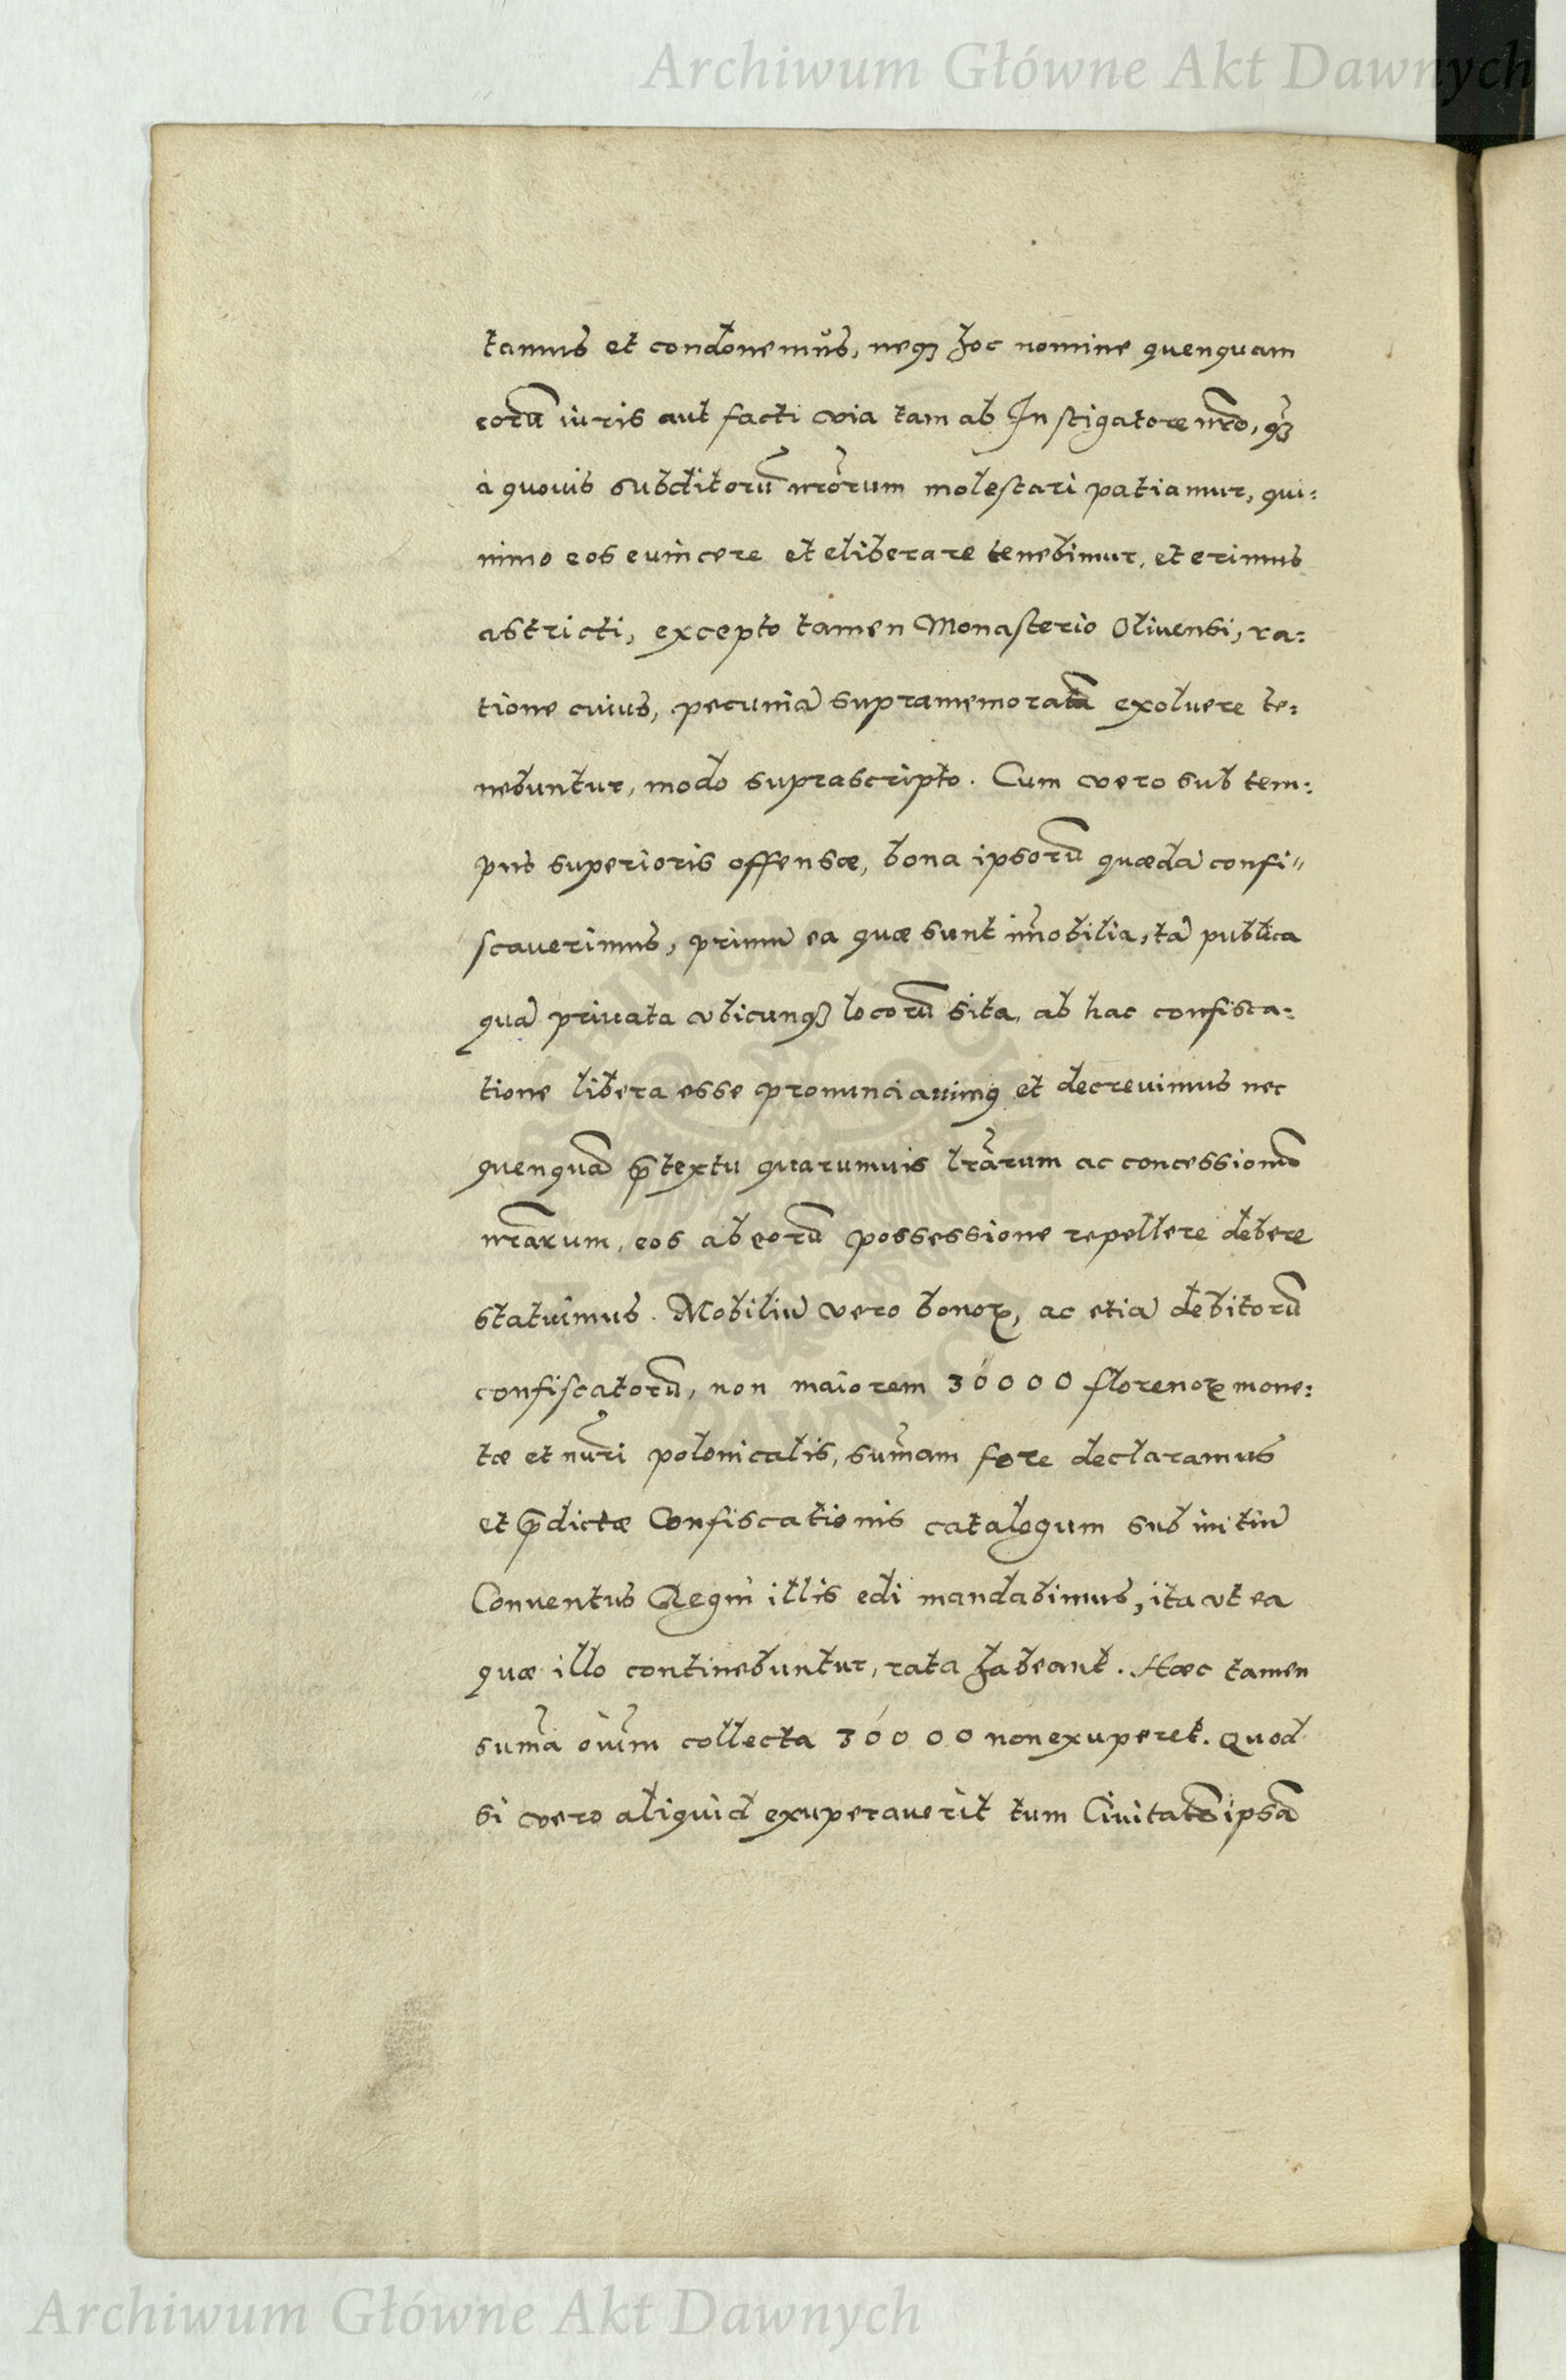 Archiwum Główne Akt Dawnych
tamus et condonemus, neqꝫ hoc nomine quenquam
eorũ iuris aut facti via tam ab Instigatore nr̃o, qꝫ
à quouis subditorũ nr̃orum molestari patiamur, qui:
nimo eos euincere et eliberare tenebimur, et erimus
astricti, excepto tamen Monasterio Oliuensi, ra:
tione cuius, pecuniã supramemoratã exoluere te:
nebuntur, modo suprascripto. Cum vero sub tem:
pus superioris offensæ, bona ipsorũ quædã confi〃
scauerimus, primũ ea quæ sunt im̃obilia, tã publica
quã priuata vbicunqꝫ locorũ sita, ab hac confisca:
tione libera esse pronunciauimꝰ et decreuimus nec
quenquã p̃textu quarumuis lr̃arum ac concessionũ
nr̃arum, eos ab eorũ possessione repellere debere
statuimus. Mobiliũ vero bonoꝝ, ac etiã debitorũ
confiscatorũ, non maiorem 30000 florenoꝝ mone:
tæ et nũri polonicalis, sum̃am fore declaramus
et p̃dictæ Confiscationis catalogum sub initiũ
Conuentus Regni illis edi mandabimus, ita vt ea
quæ illo continebuntur, rata habeant. Hæc tamen
sum̃a oĩum collecta 30000 non exuperet. Quod
si vero aliquid exuperauerit tum Ciuitatẽ ipsã
ARCHIWUM GŁÓWNE AKT DAWNYCH
Archiwum Główne Akt Dawnych